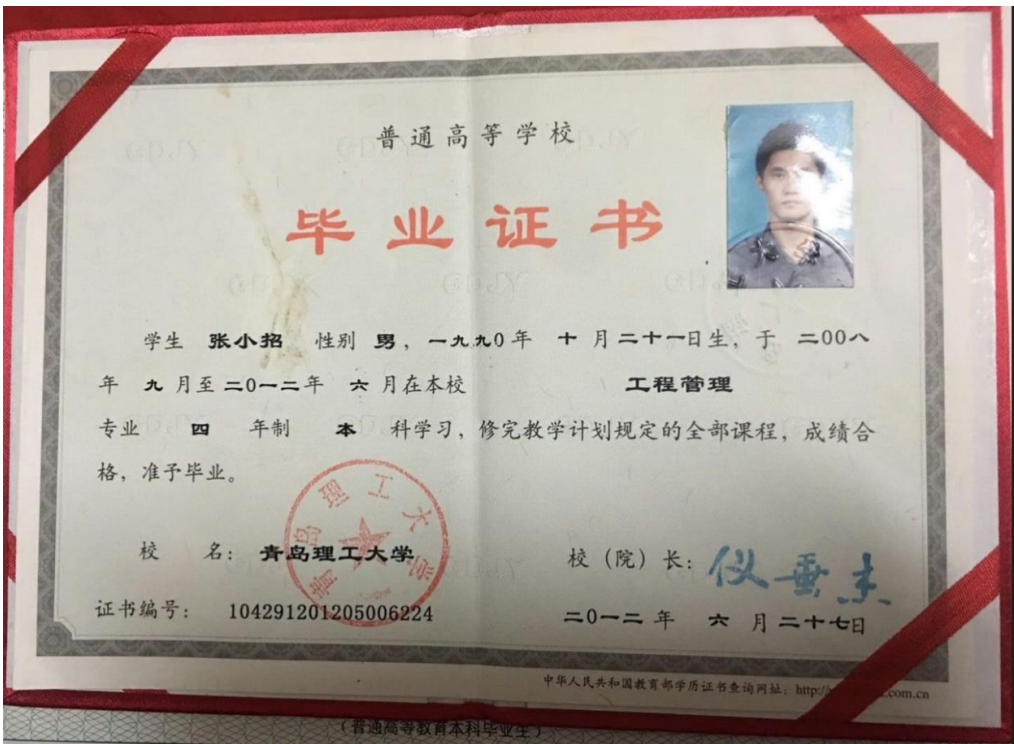 普通高等学校
毕业证书
学生 张小招 性别 男，一九九0年 十 月二十一日生，于 二00八
年 九 月至二0一二年 六 月在本校 工程管理
专业 四 年制 本 科学习，修完教学计划规定的全部课程，成绩合
格，准予毕业。
青岛理工大学
校 名： 青岛理工大学
校（院）长： 仪垂杰
证书编号： 104291201205006224
二0一二年 六 月二十七日
中华人民共和国教育部学历证书查询网址：http:// .com.cn
（普通高等教育本科毕业生）